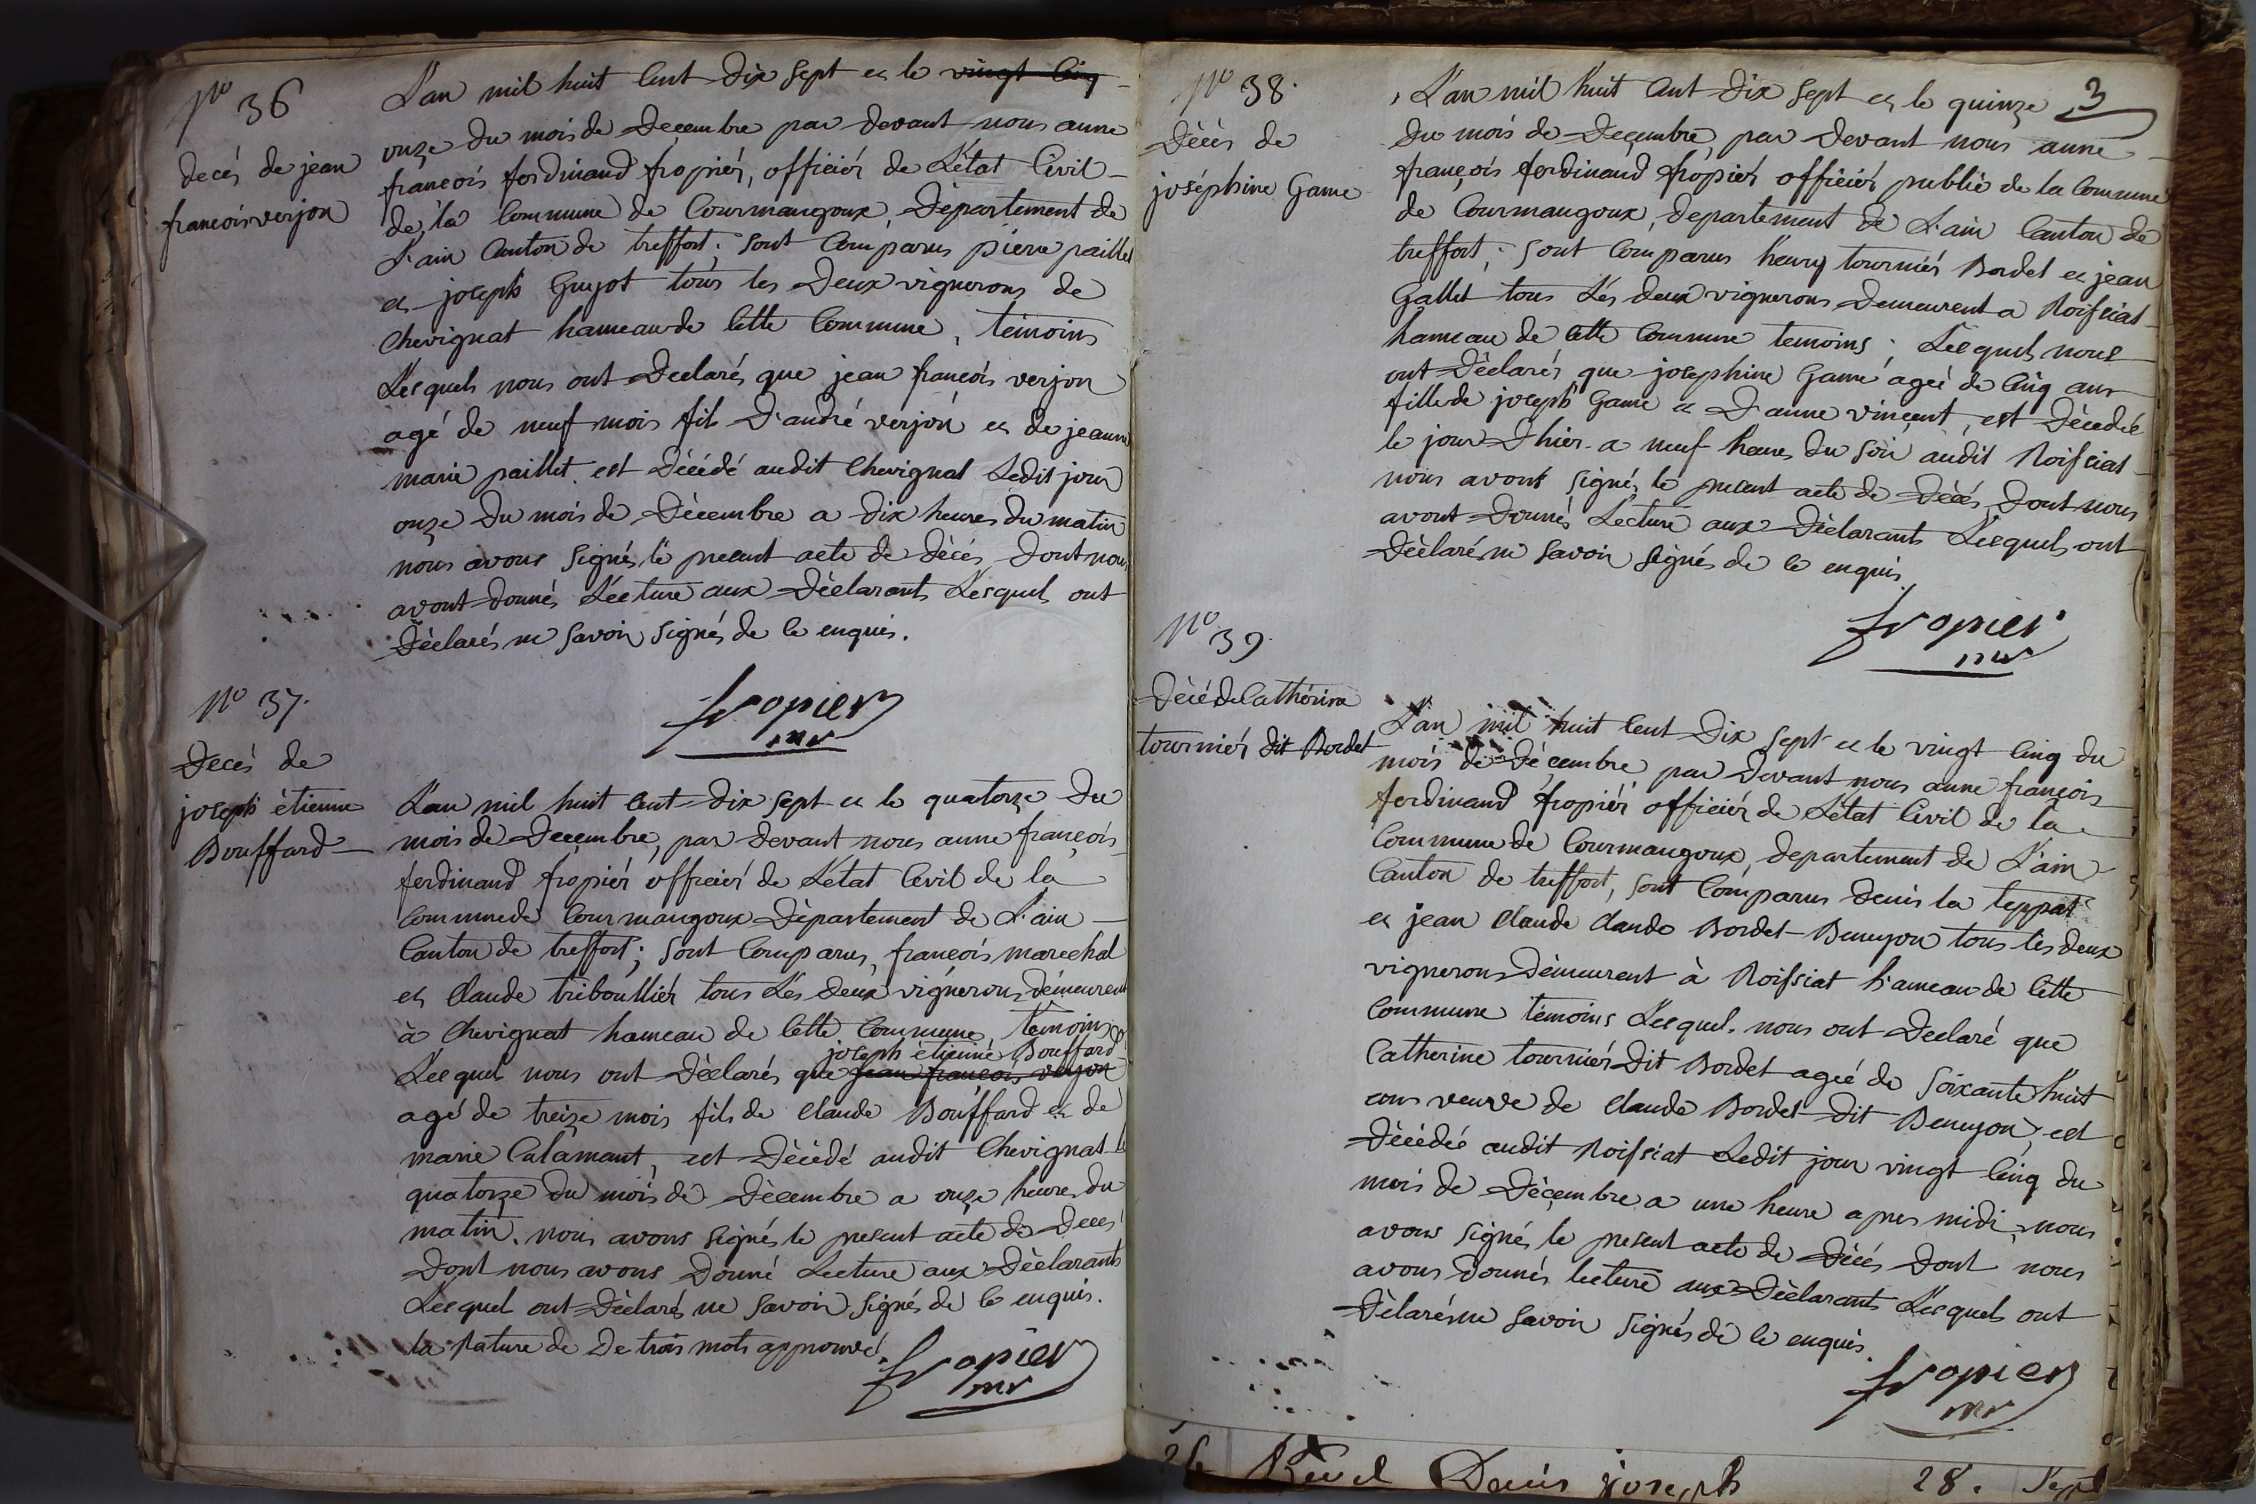 No 36
decés de jean
francois verjon
L'an mil huit Cent Dix Sept et le vingt Cinq
onze Du mois de Decembre par devant nous anne
francois ferdinand fropiér, officiér de L'état Civil
de la Commune de Courmangoux, Département de
L'ain Canton de treffort; Sont Comparus pierre paillet
et joseph Guyot tous les Deux vignerons de
Chevignat hameau de Cette Commune, témoins
Lesquels nous ont Declarés que jean francois verjon
agé de neuf mois fils D'andré verjon et de jeanne
marie paillet est Décédé audit Chevignat Ledit jour
onze Du mois de Décembre a Dix heures du matin
nous avons Signés le present acte de décés, Dont nous
avont donnés Lecture aux Déclarants Lesquels ont
Déclarés ne Savoir Signés de Ce enquis.
fropier
mr
No 37.
Decés de
joseph étienne
Bouffard
L'an mil huit Cent Dix Sept et le quatorze Du
mois de Decembre, par devant nous anne françois
ferdinand fropiér officiér de L'état Civil de la
Commune de Courmangoux Département de L'ain
Canton de treffort; Sont Comparus, françois marechal
et Claude tribouilliér tous Les Deux vignérons, démeurent
à Chevignat hameau de Cette Commune, témoins
joseph étienne Bouffard
Lesquels nous ont Déclarés que jean françois verjon
agé de treize mois fils de Claude Bouffard et de
marie Calamant, est Décédé audit Chevignat le
quatorze Du mois de Décembre a onze heures du
matin. nous avons Signés le present acte de Deces
Dont nous avons Donné Lecture aux Déclarants
Lesquel ont Déclarés ne Savoir Signés de Ce enquis.
la Rature de De trois mots approuvé
fropier
mr
3
No 38.
Décés de
joséphine Game
L'an mil huit Cent Dix Sept et le quinze
Du mois de Decembre, par Devant nous anne
françois ferdinand fropiér officiér public de la Commune
de Courmangoux, departement de L'ain Canton de
treffort; Sont Comparus henry tourniér Bordet et jean
Gallet tous Les deux vignerons Demeurent a Roissiat
hameau de Cette Commune temoins; Lesquels nous
ont Déclarés que josephine Game agée de Cinq ans
fille de joseph Game et D'anne vincent, est Décedée
le jour D'hier a neuf heures Du Soir audit Roissiat
nous avont Signés le present acte de Décés, Dont nous
avont Donnés Lecture aux Déclarants Lesquels ont
Déclarés ne Savoir Signés de Ce enquis.
fropier
mr
No 39.
Décé de Catherine
tourniér dit Bordet
L'an mil huit Cent Dix Sept et le vingt Cinq du
mois de Décembre par Devant nous anne françois
ferdinand fropiér officiér de L'état Civil de la
Commune de Courmangoux, departement de L'ain
Canton de treffort, Sont Comparus Denis la teppat
et jean Claude Claude Bordet-Benuyon tous les deux
vignerons Démeurent à Roissiat hameau de Cette
Commune témoins Lesquel. nous ont Declaré que
Catherine tourniér Dit Bordet agée de Soixante huit
ans veuve de Claude Bordet Dit Benuyon, est
Décédée audit Roissiat Ledit jour vingt Cinq du
mois de Décembre a une heure apres midi, nous
avons Signés le present acte de Décés Dont nous
avons Donnés lecture aux Déclarants Lesquels ont
Déclarés ne Savoir Signés de Ce enquis.
fropier
mr
Denis joseph 28. Sept